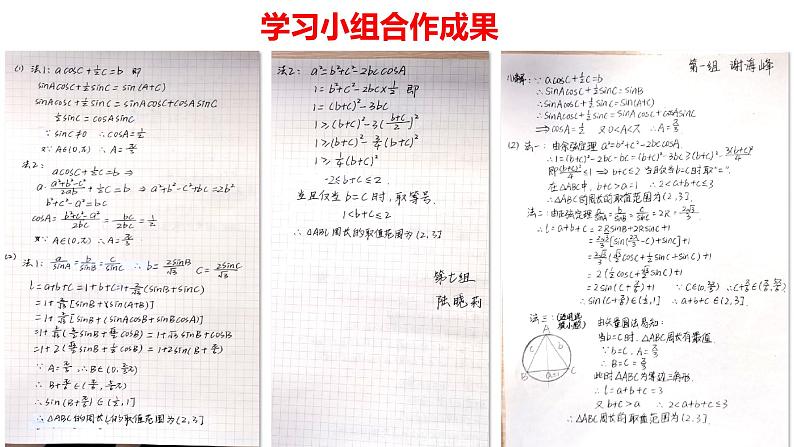 学习小组合作成果
(1) 法1: acosC+½c=b 即
sinAcosC+½sinC=sin(A+C)
sinAcosC+½sinC=sinAcosC+cosAsinC
½sinC=cosAsinC
∵sinC≠0 ∴cosA=½
又∵A∈(0,π) ∴A=π/3
法2:
acosC+½c=b ⇒
a·(a²+b²-c²)/2ab+½c=b ⇒ a²+b²-c²+bc=2b²
b²+c²-a²=bc
cosA=(b²+c²-a²)/2bc=bc/2bc=1/2
又∵A∈(0,π) ∴A=π/3
(2) 法1: a/sinA=b/sinB=c/sinC ∴b=2sinB/√3 C=2sinC/√3
l=a+b+c=1+b+c=1+2/√3(sinB+sinC)
=1+2/√3[sinB+sin(A+B)]
=1+2/√3[sinB+(sinAcosB+sinBcosA)]
=1+2/√3(3/2sinB+√3/2cosB)=1+√3sinB+cosB
=1+2(√3/2sinB+½cosB)=1+2sin(B+π/6)
∵A=π/3 ∴B∈(0,2/3π)
∴B+π/6∈(π/6,5/6π)
∴sin(B+π/6)∈(½,1]
∴△ABC的周长l的取值范围为(2,3]
法2: a²=b²+c²-2bccosA
1=b²+c²-2bc×½ 即
1=(b+c)²-3bc
1≥(b+c)²-3(b+c/2)²
1≥(b+c)²-¾(b+c)²
1≥¼(b+c)²
-2≤b+c≤2
当且仅当b=c时,取等号.
1<b+c≤2
∴△ABC周长的取值范围为(2,3]
第七组
陆晓莉
第一组 谢海峰
∵acosC+½c=b
∴sinAcosC+½sinC=sinB
∴sinAcosC+½sinC=sin(A+C)
∴sinAcosC+½sinC=sinAcosC+cosAsinC
⇒cosA=½ 又0<A<π ∴A=π/3
(2) 法一: 由余弦定理 a²=b²+c²-2bccosA
∴1=(b+c)²-2bc-bc=(b+c)²-3bc≥(b+c)²-3(b+c)²/4
即(b+c)²/4≤1⇒b+c≤2 当且仅当b=c时取"="
在△ABC中, b+c>a=1 ∴2<a+b+c≤3
∴△ABC的周长的取值范围为(2,3].
法二: 由正弦定理 a/sinA=b/sinB=c/sinC=2R=2√3/3
∴l=a+b+c=2RsinB+2RsinC+1
=2√3/3[sin(2π/3-C)+sinC]+1
=2√3/3(√3/2cosC+½sinC+sinC)+1
=2(½cosC+√3/2sinC)+1
=2sin(C+π/6)+1 ∵C∈(0,2π/3) ∴C+π/6∈(π/6,5π/6)
∴sin(C+π/6)∈(½,1] ∴a+b+c∈(2,3].
法三:
A
c b
B a=1 C
由矢量圆法易知:
当b=c时,△ABC周长有最值
∵b=c, A=π/3
∴B=C=π/3
此时△ABC为等边三角形.
∴l=a+b+c=3
又b+c>a ∴2<a+b+c≤3
∴△ABC周长的取值范围为(2,3].